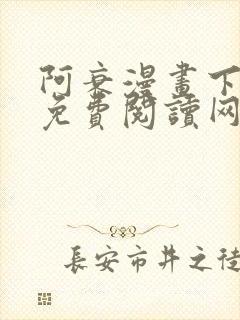 阿衰漫畫下
免費閱讀网
長安市井之徒